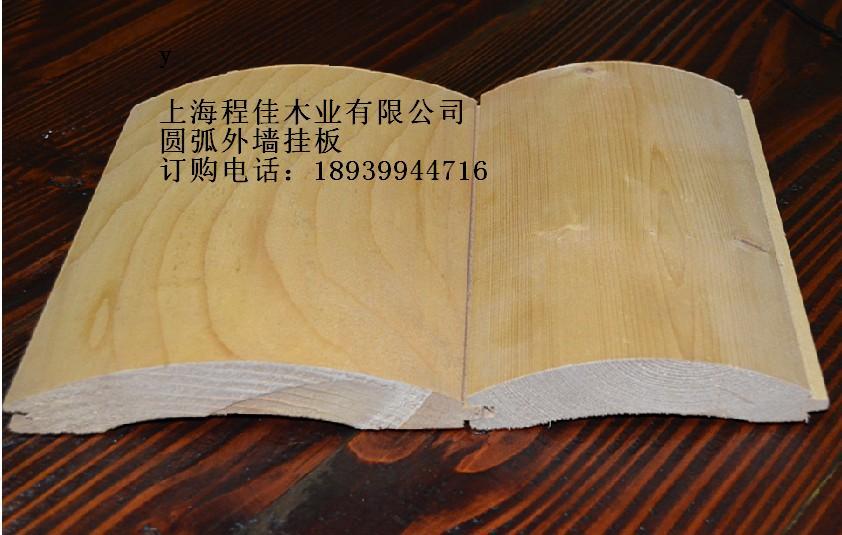 y
上海程佳木业有限公司
圆弧外墙挂板
订购电话：18939944716